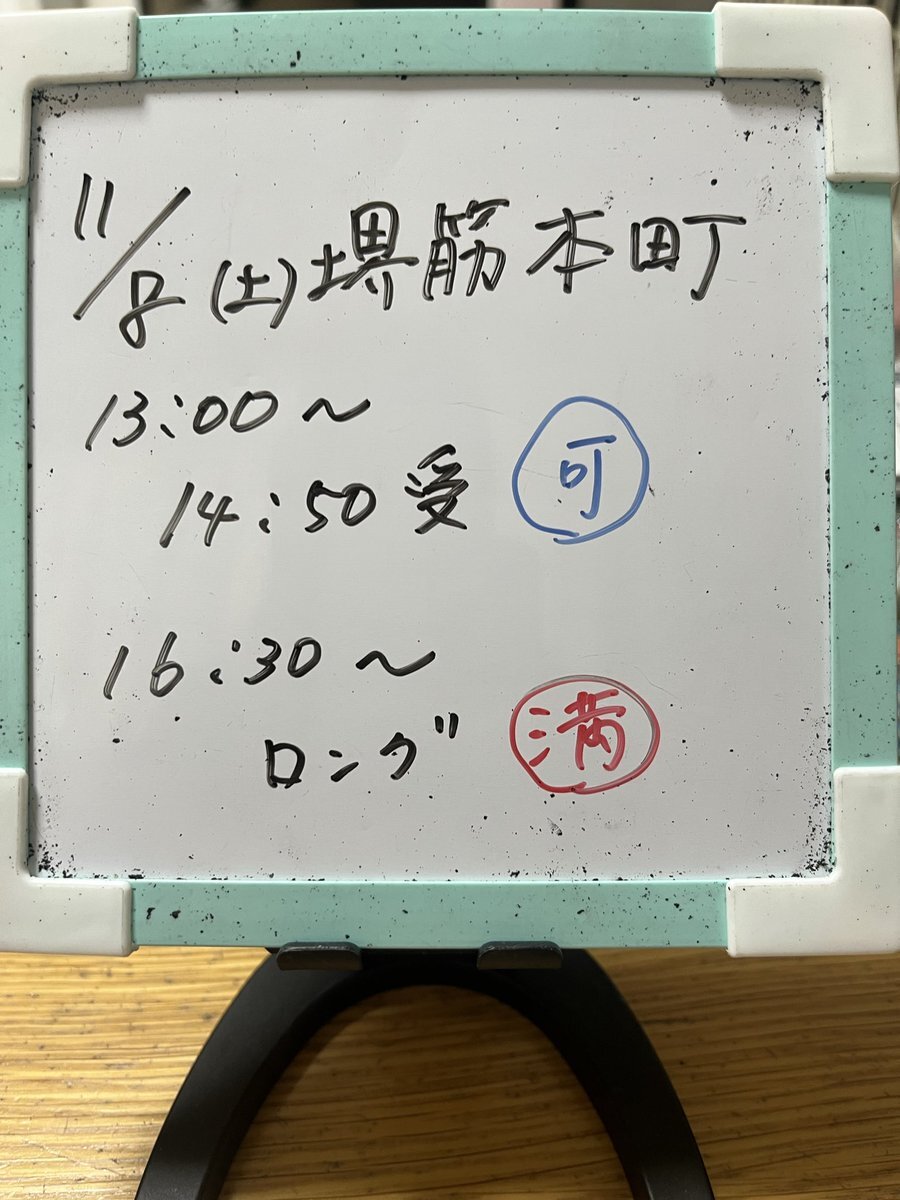 11/8(土)堺筋本町
13:00〜
14:50受 可
16:30〜
ロング 満